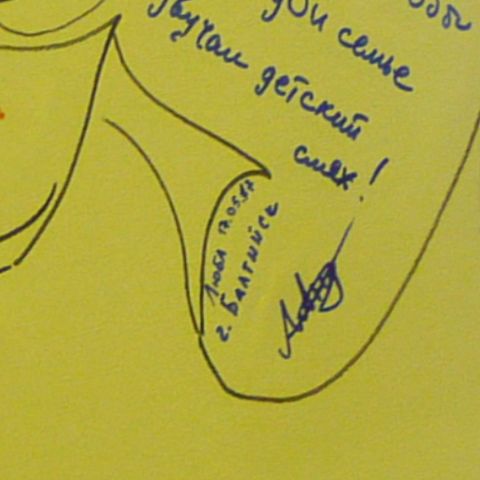 семье
звучал детский
смех!
Люба 17.05.17
г. Балтийск